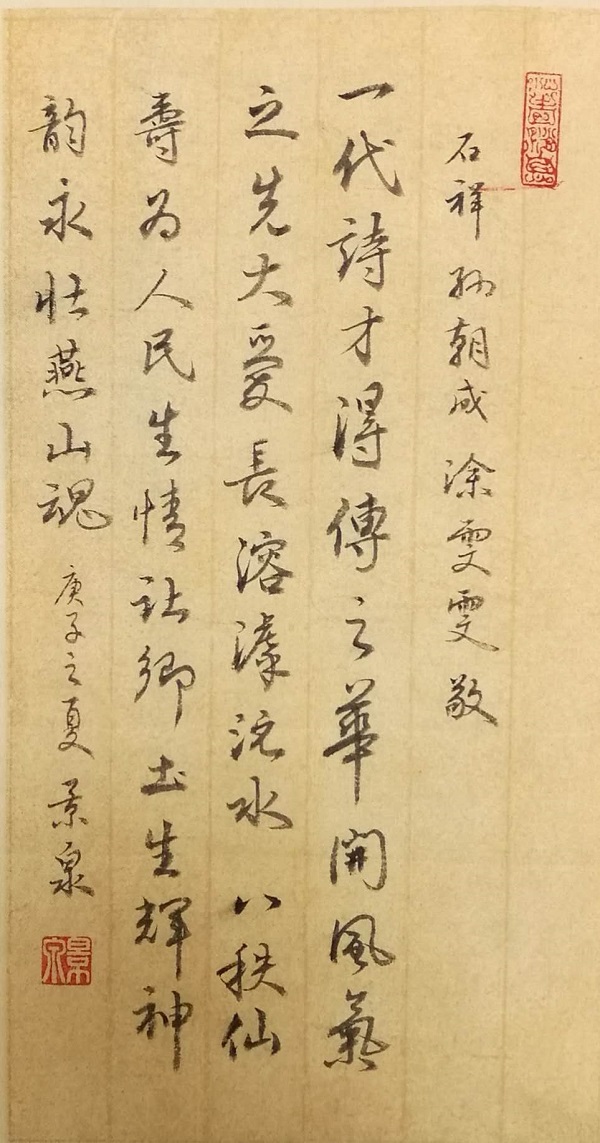 石祥孙朝成涂雯雯敬
一代詩才得傳之華開風氣
之先大愛長溶滹沱水八秩仙
壽为人民生情让卿土生輝神
韵永壮燕山魂庚子之夏景泉
景泉